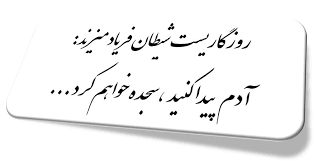 روزگاریست شیطان فریاد میزند:
آدم پیدا کنید ، سجده خواهم کرد ...